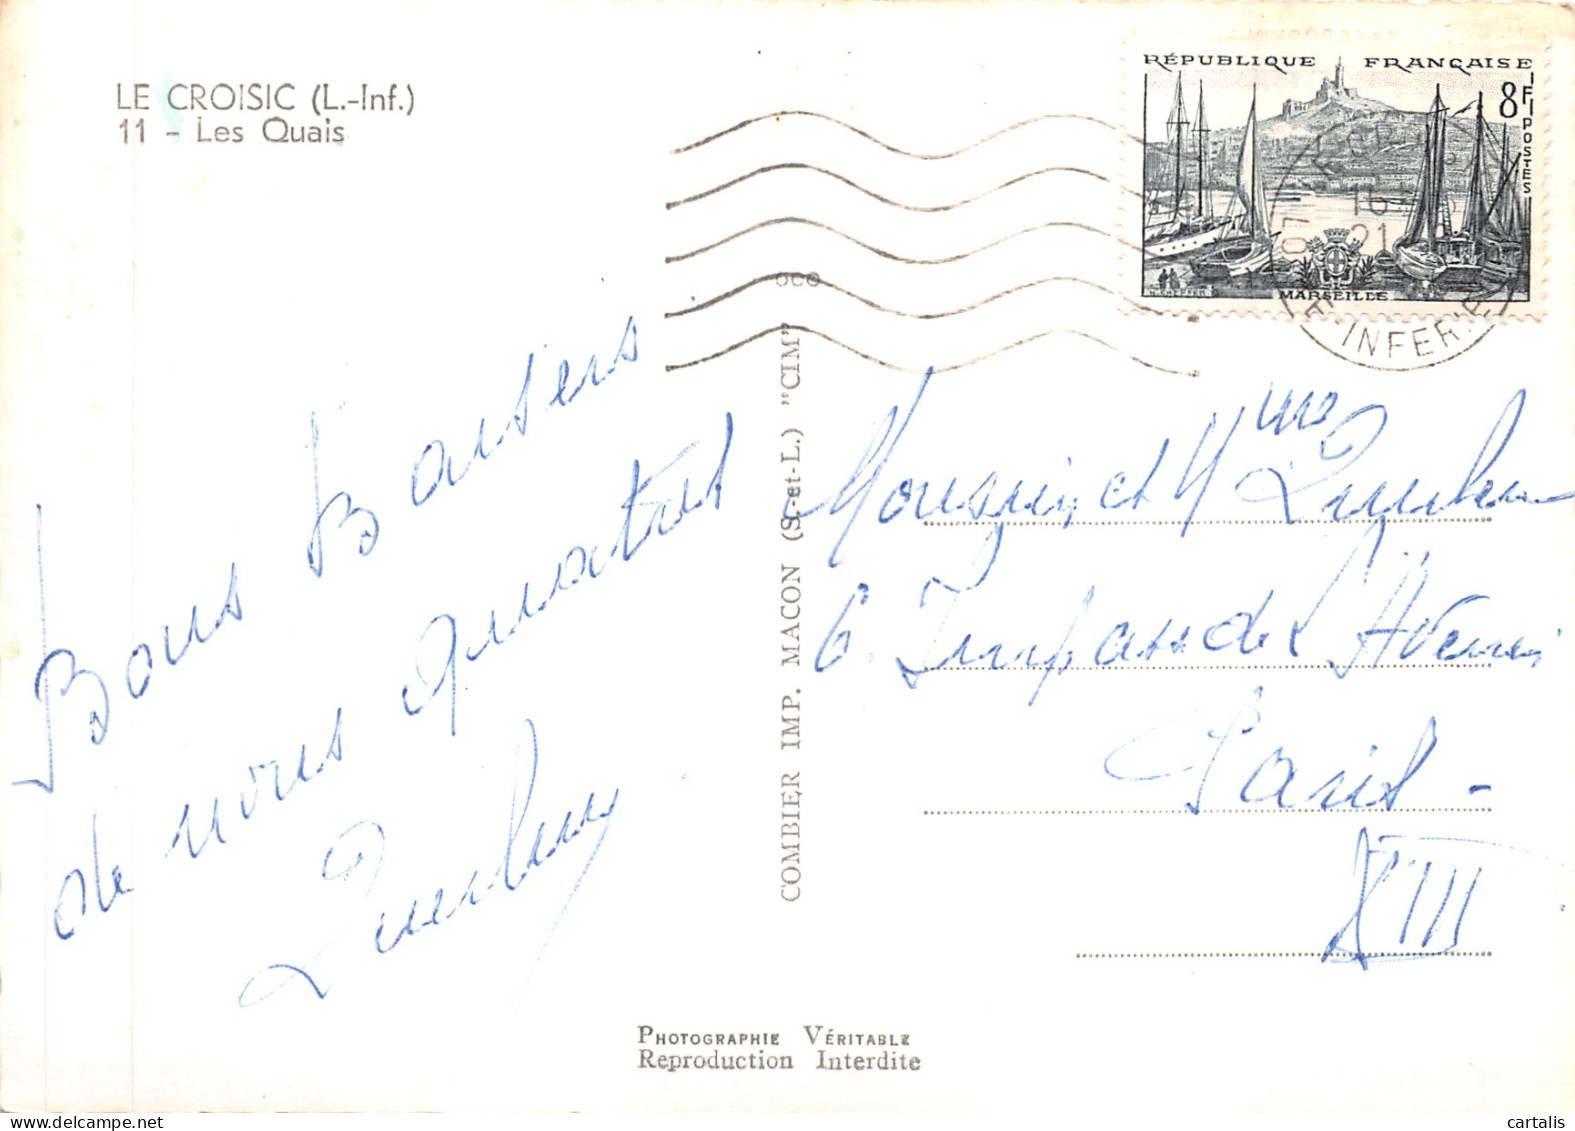 LE CROISIC (L.-Inf.)
11 - Les Quais
RÉPUBLIQUE FRANÇAISE
8F
POSTES
MARSEILLE
16
21
INFERRE
Bons Baisers
de nous quatres
COMBIER IMP. MACON (S.-et-L.) "CIM"
Monsieur et Mme
6. Impasse de l'Avenir
Paris -
XIII
PHOTOGRAPHIE VÉRITABLE
Reproduction Interdite
cartalis